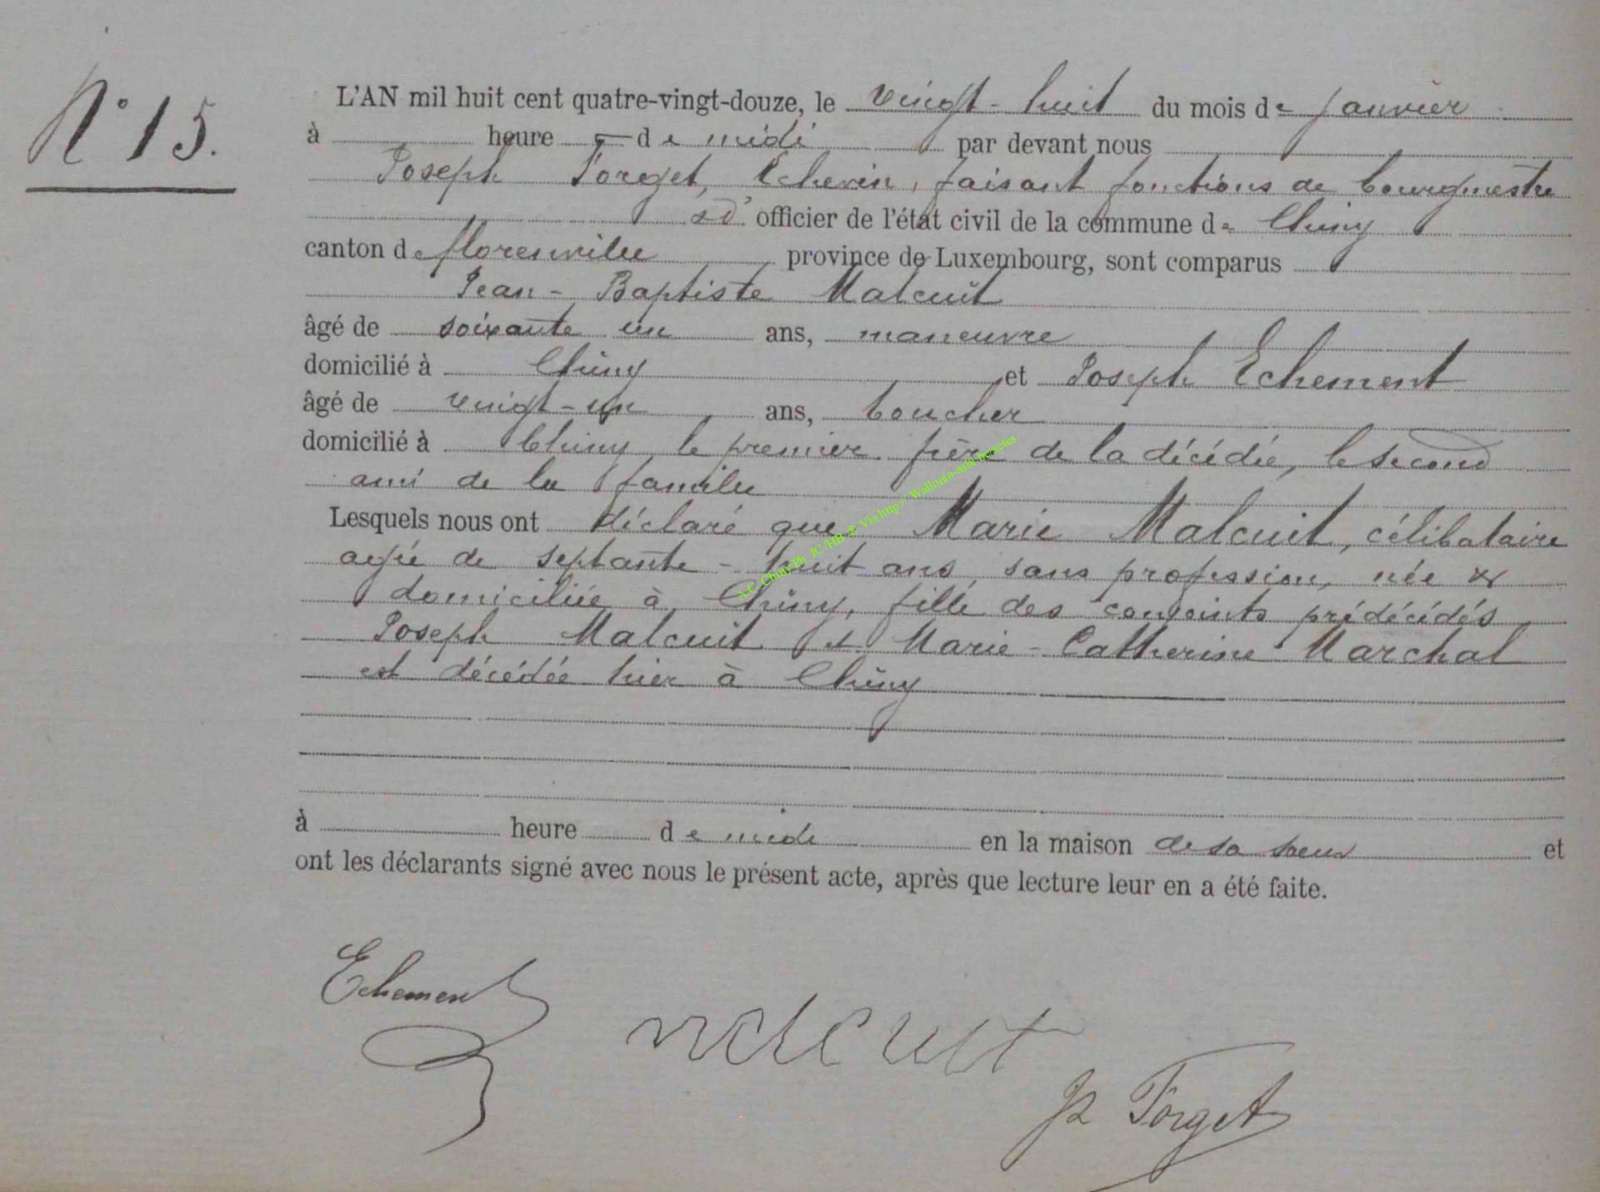 N° 15.
L'AN mil huit cent quatre-vingt-douze, le vingt-huit du mois de janvier
à heure de midi par devant nous
Joseph Forget, Echevin, faisant fonctions de bourgmestre
officier de l'état civil de la commune de Chiny
canton de florenville province de Luxembourg, sont comparus
Jean-Baptiste Malcuit
âgé de soixante un ans, maneuvre
domicilié à Chiny et Joseph Echement
âgé de vingt-un ans, boucher
domicilié à Chiny, le premier frère de la décédée, le second
ami de la famille
Lesquels nous ont déclaré que Marie Malcuit, célibataire
agée de septante-huit ans, sans profession, née &
domiciliée à Chiny, fille des conjoints prédécédés
Joseph Malcuit et Marie-Catherine Marchal
est décédée hier à Chiny
à heure de midi en la maison de sa soeur et
ont les déclarants signé avec nous le présent acte, après que lecture leur en a été faite.
Echement
malcuit
Forget